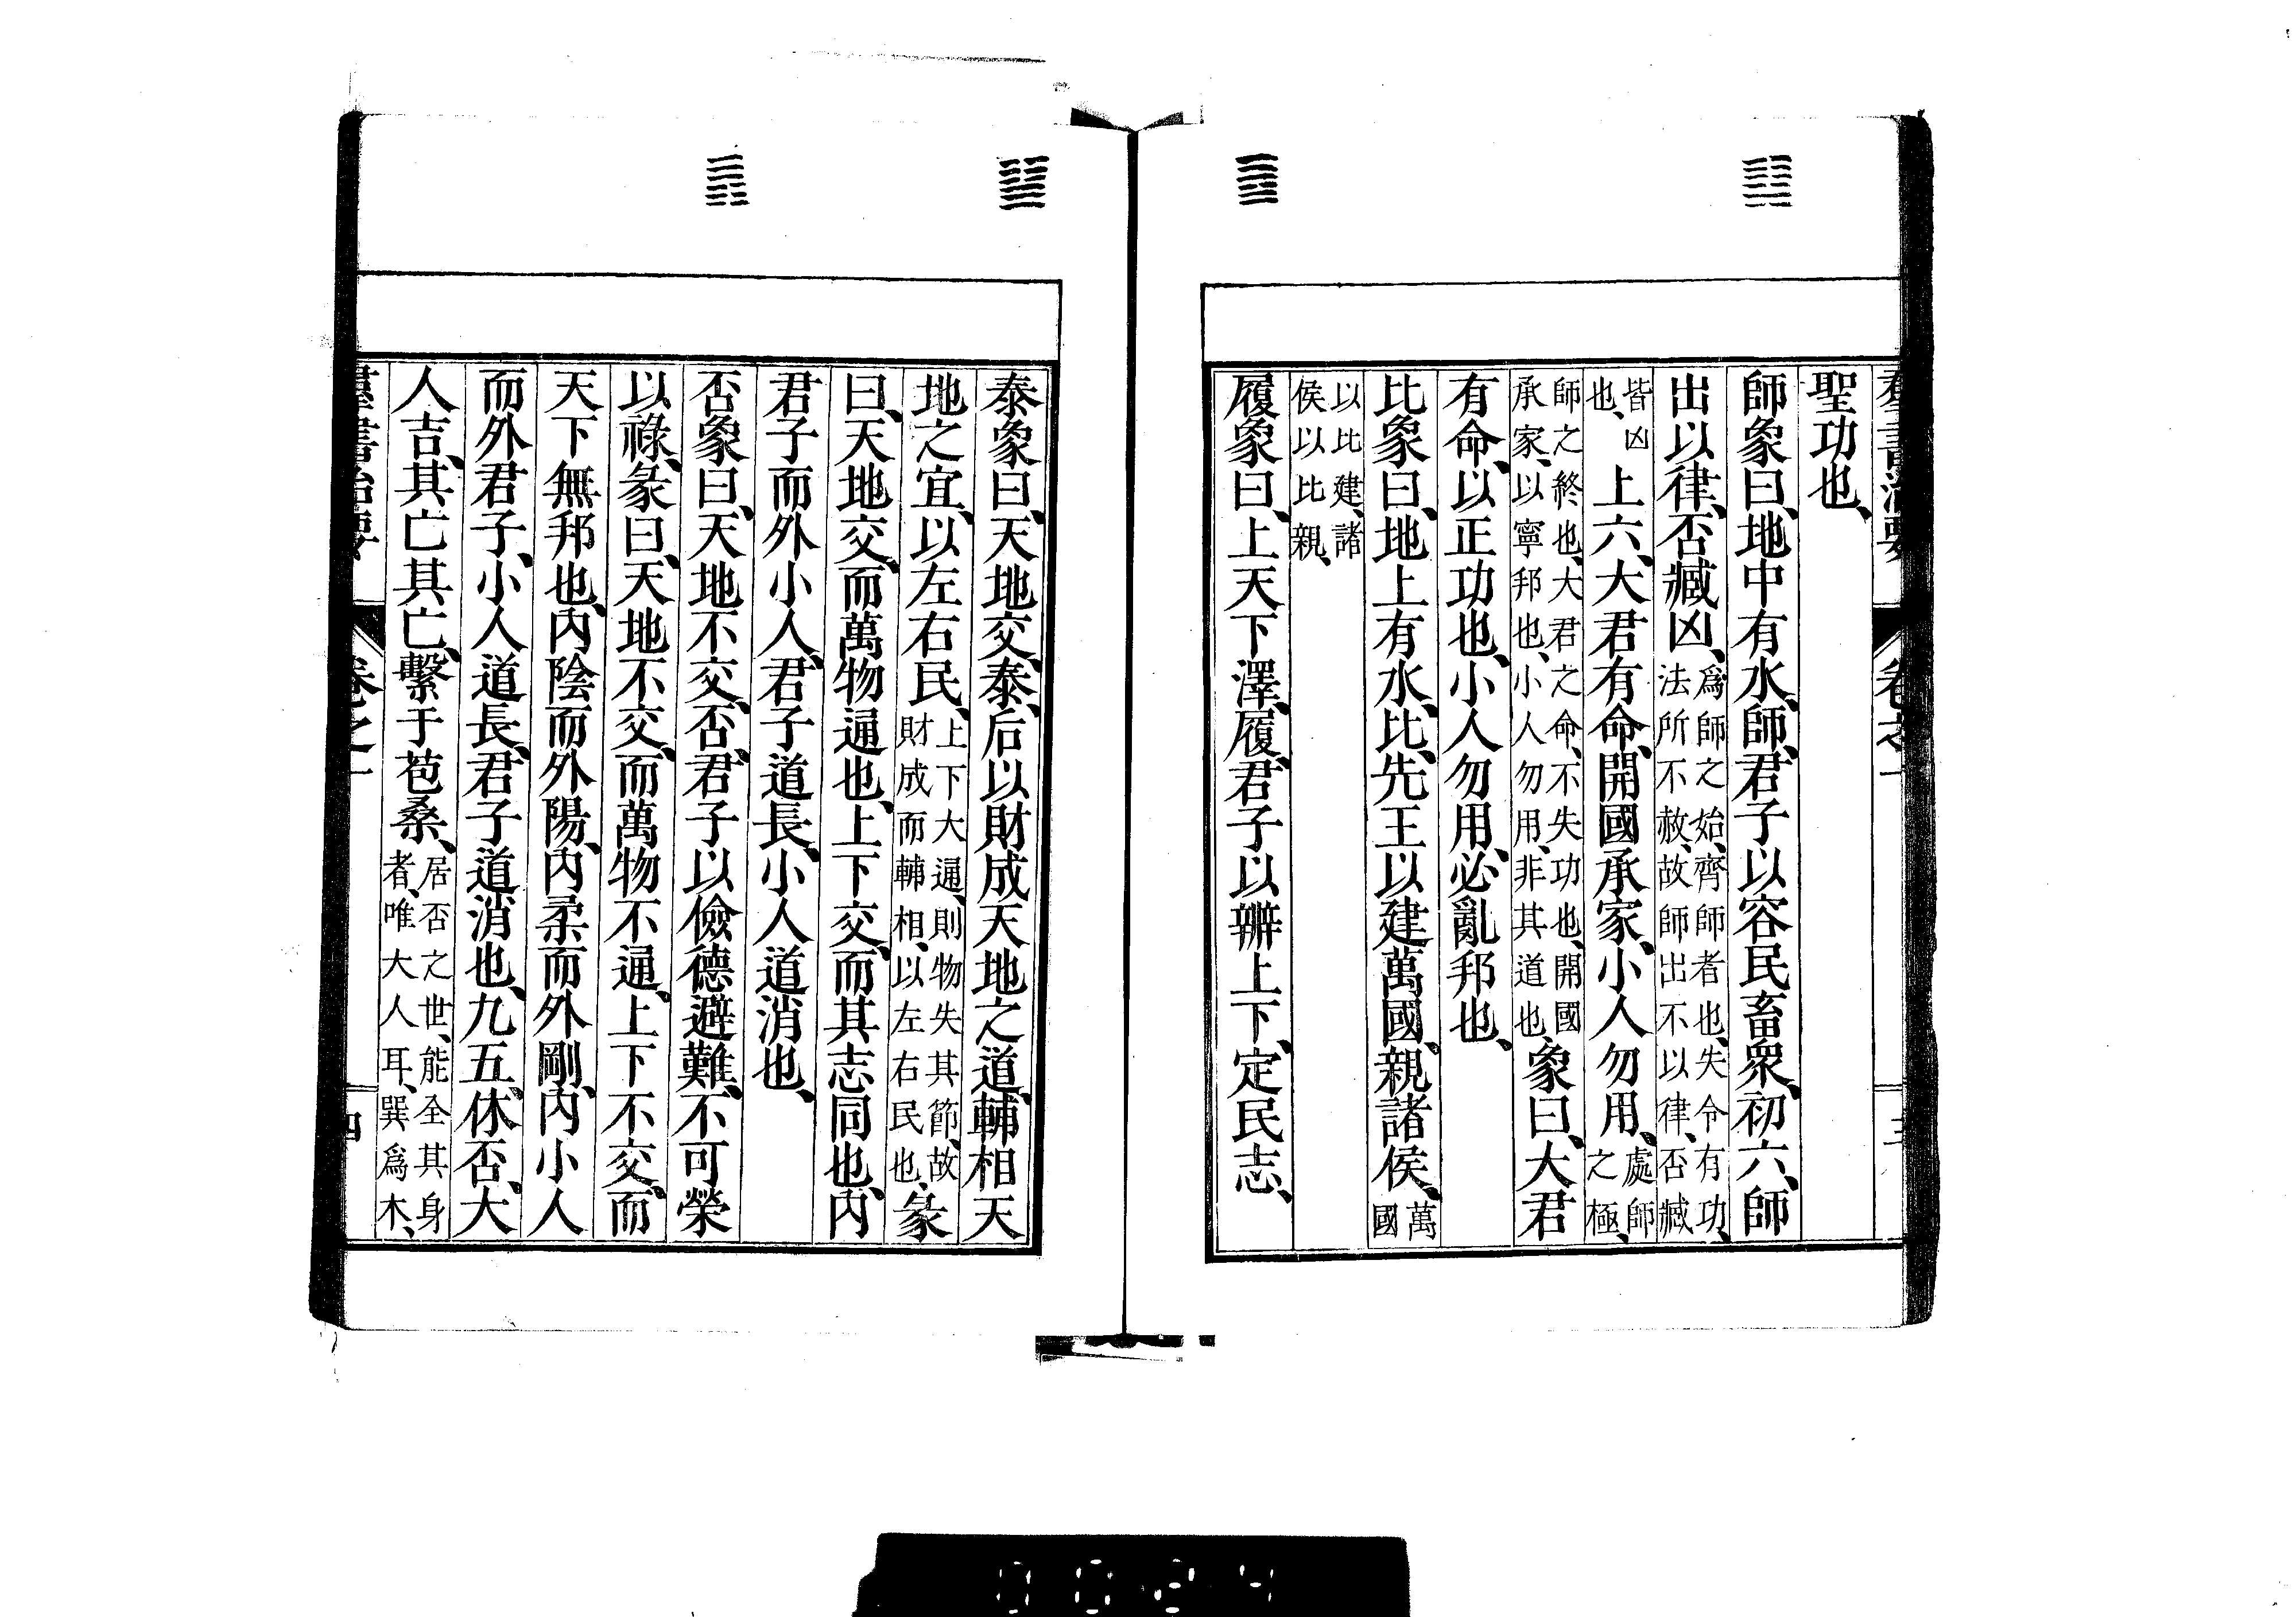 羣書治要 卷之一 三
聖功也、
師象曰、地中有水、師、君子以容民畜衆、初六、師
出以律、否臧凶、爲師之始、齊師者也、失令有功、法所不赦、故師出不以律、否臧
皆凶也、上六、大君有命、開國承家、小人勿用、處師之極、
師之終也、大君之命、不失功也、開國承家、以寧邦也、小人勿用、非其道也、象曰、大君
有命、以正功也、小人勿用、必亂邦也、
比象曰、地上有水、比、先王以建萬國、親諸侯、萬國
以比建、諸侯以比親、
履象曰、上天下澤、履、君子以辨上下、定民志、
泰象曰、天地交、泰、后以財成天地之道、輔相天
地之宜、以左右民、上下大通、則物失其節、故財成而輔相、以左右民也、彖
曰、天地交、而萬物通也、上下交、而其志同也、內
君子而外小人、君子道長、小人道消也、
否象曰、天地不交、否、君子以儉德避難、不可榮
以祿、彖曰、天地不交、而萬物不通、上下不交、而
天下無邦也、內陰而外陽、內柔而外剛、內小人
而外君子、小人道長、君子道消也、九五、休否、大
人吉、其亡其亡、繫于苞桑、居否之世、能全其身者、唯大人耳、巽爲木、
羣書治要 卷之一 四
0024